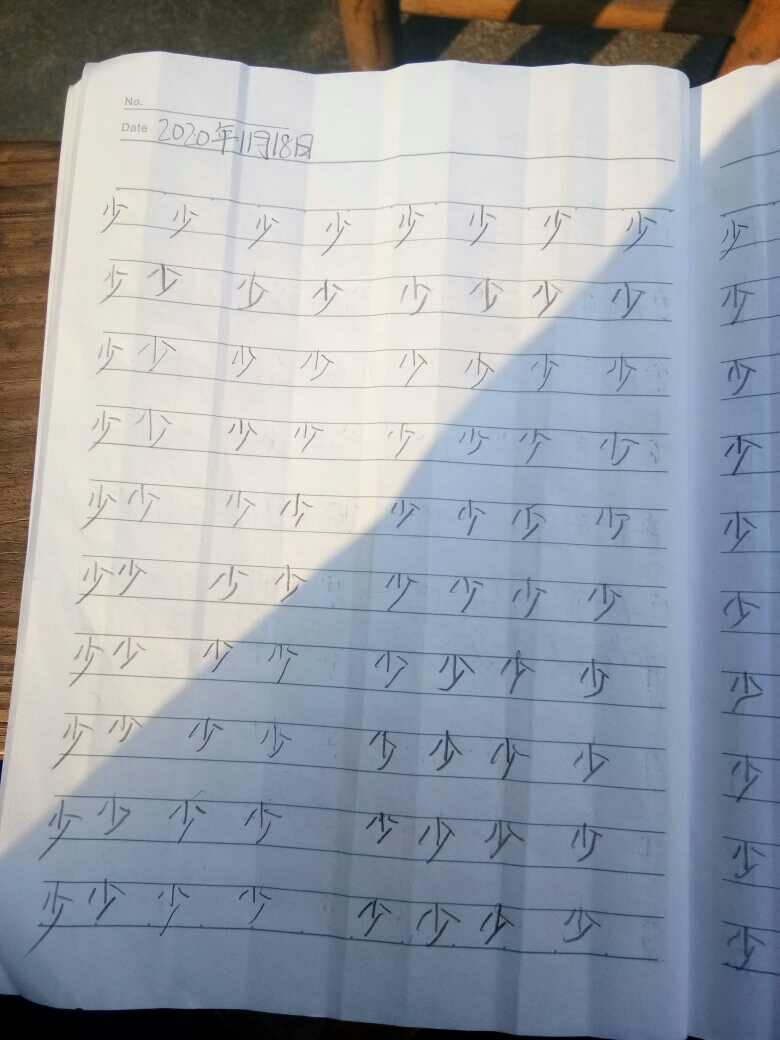 No.
Date 2020年11月18日
少 少 少 少 少 少 少 少
少 少 少 少 少 少 少 少
少 少 少 少 少 少 少 少
少 少 少 少 少 少 少 少
少 少 少 少 少 少 少 少
少 少 少 少 少 少 少 少
少 少 少 少 少 少 少 少
少 少 少 少 少 少 少 少
少 少 少 少 少 少 少 少
少 少 少 少 少 少 少 少
少
少
少
少
少
少
少
少
少
少